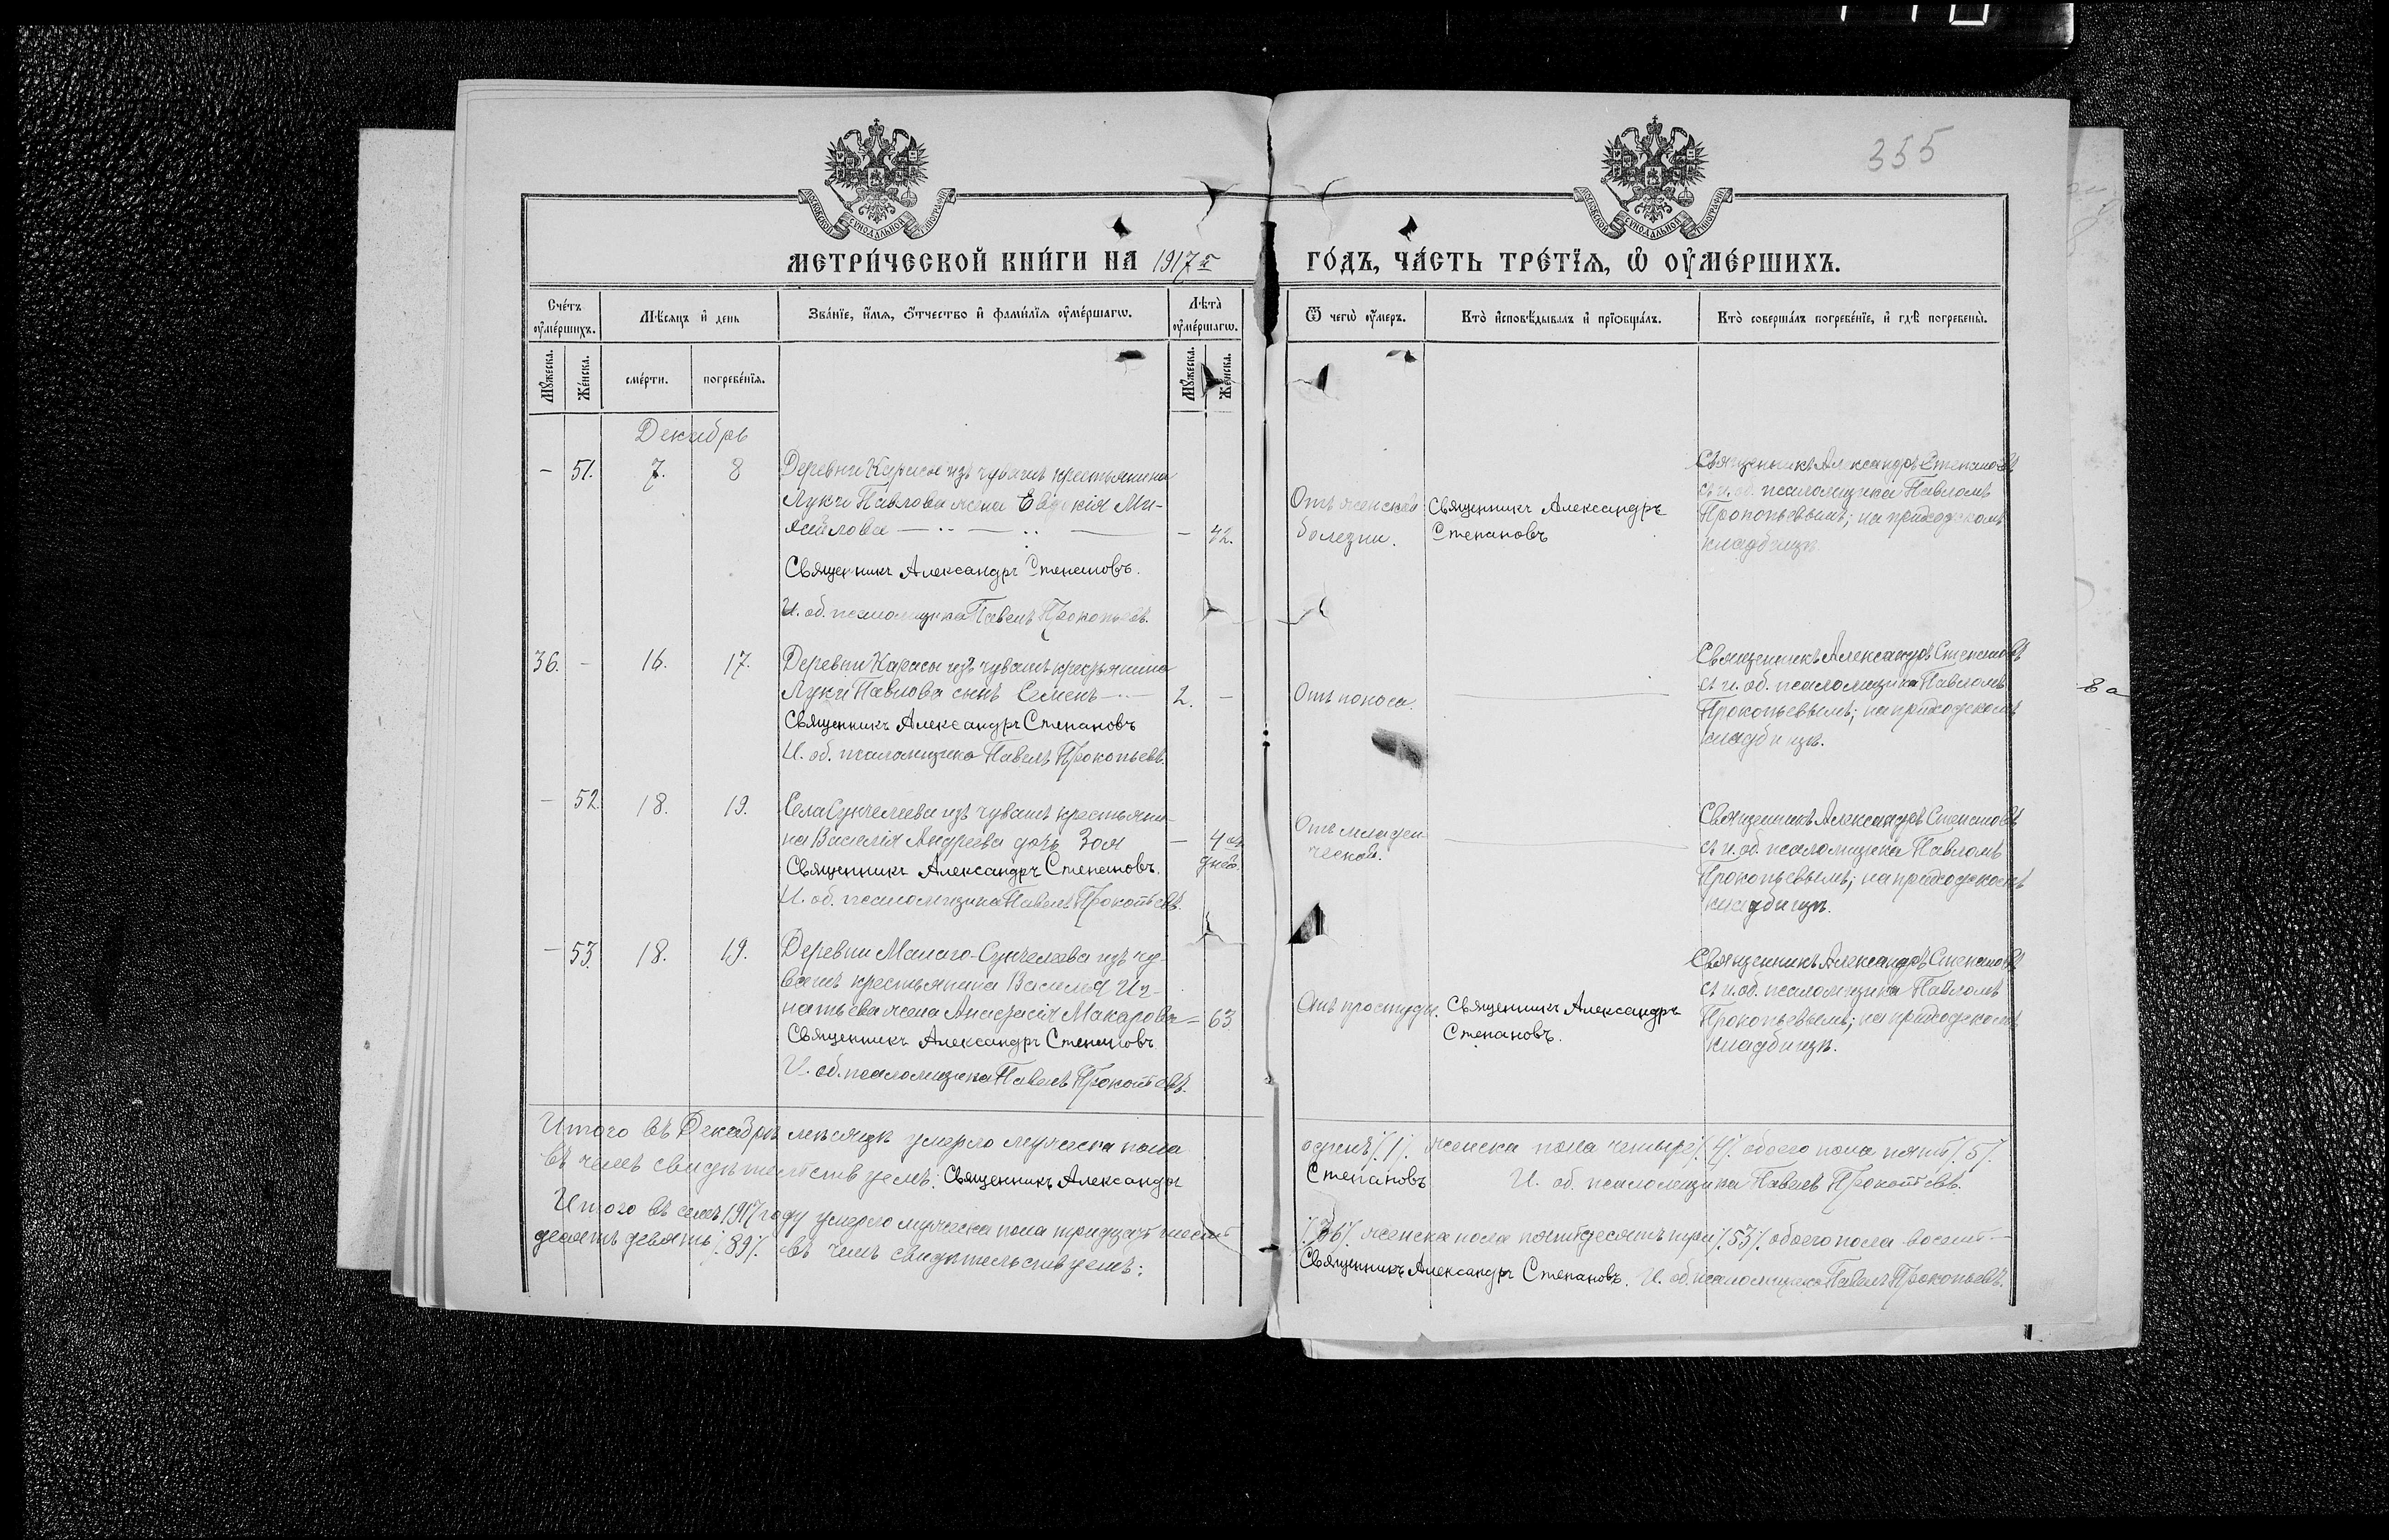 355
МОСКОВСКОЙ СѴНОДАЛЬНОЙ ТѴПОГРАФІИ
МОСКОВСКОЙ СѴНОДАЛЬНОЙ ТѴПОГРАФІИ
МЕТРИ́ЧЕСКОЙ КНИ́ГИ НА 1917 й ГО́ДЪ, ЧА́СТЬ ТРЕ́ТЇѦ, Ѡ҆ ОУ҆МЕ́РШИХЪ.
Сче́тъ оу҆ме́ршихъ.
Мѣсяцъ и҆ день
Зва́нїе, и҆́мя, о҆́тчество и҆ фами́лїя оу҆ме́ршагѡ.
Лѣта̀ оу҆ме́ршагѡ.
Ѿ чегѡ̀ оу҆́меръ.
Кто̀ и҆сповѣ́дывалъ и҆ прїѡбща́лъ.
Кто̀ соверша́лъ погребе́нїе, и҆ гдѣ̀ погребены̀.
Мꙋ́жеска.
Же́нска.
сме́рти.
погребе́нїя.
Мꙋ́жеска.
Же́нска.
Декабрь
- 51. 7. 8 Деревни Карасы изъ чувашъ крестьянина
Луки Павлова жена Евдокія Ми-
хайлова - 42.
Священникъ Александръ Степановъ.
И. об. псаломщика Павелъ Прокопьевъ.
Отъ женской
болезни.
Священникъ Александръ
Степановъ
Священникъ Александръ Степановъ
съ и. об. псаломщика Павломъ
Прокопьевымъ; на приходскомъ
кладбищѣ.
36. - 16. 17. Деревни Карасы изъ чувашъ крестьянина
Луки Павлова сынъ Семенъ 2. -
Священникъ Александръ Степановъ
И. об. псаломщика Павелъ Прокопьевъ.
Отъ поноса.
Священникъ Александръ Степановъ
съ и. об. псаломщика Павломъ
Прокопьевымъ; на приходскомъ
кладбищѣ.
8 а
- 52. 18. 19. Села Сунчелеева изъ чувашъ крестьяни-
на Василія Андреева дочь Зоя - 4
Священникъ Александръ Степановъ. днев.
И. об. псаломщика Павелъ Прокопьевъ.
Отъ младен
ческой.
Священникъ Александръ Степановъ
съ и. об. псаломщика Павломъ
Прокопьевымъ; на приходскомъ
кладбищѣ.
- 53. 18. 19. Деревни Малаго-Сунчелеева изъ чу-
вашъ крестьянина Василія Иг-
натьева жена Анастасія Макарова - 63
Священникъ Александръ Степановъ
И. об. псаломщика Павелъ Прокопьевъ.
Отъ простуды.
Священникъ Александръ
Степановъ.
Священникъ Александръ Степановъ
съ и. об. псаломщика Павломъ
Прокопьевымъ; на приходскомъ
кладбищѣ.
Итого въ Декабрѣ месяцѣ умерло мужеска пола одинъ /1/. женска пола четыре /4/. обоего пола пять /5/.
въ чемъ свидѣтельствуемъ: Священникъ Александръ Степановъ И. об. псаломщика Павелъ Прокопьевъ.
Итого въ семъ 1917 году умерло мужеска пола тридцать шесть /36/. женска пола пятьдесятъ три /53/. обоего пола восемь-
десятъ девять /89/. въ чемъ свидѣтельствуемъ: Священникъ Александръ Степановъ. И. об. псаломщика Павелъ Прокопьевъ.